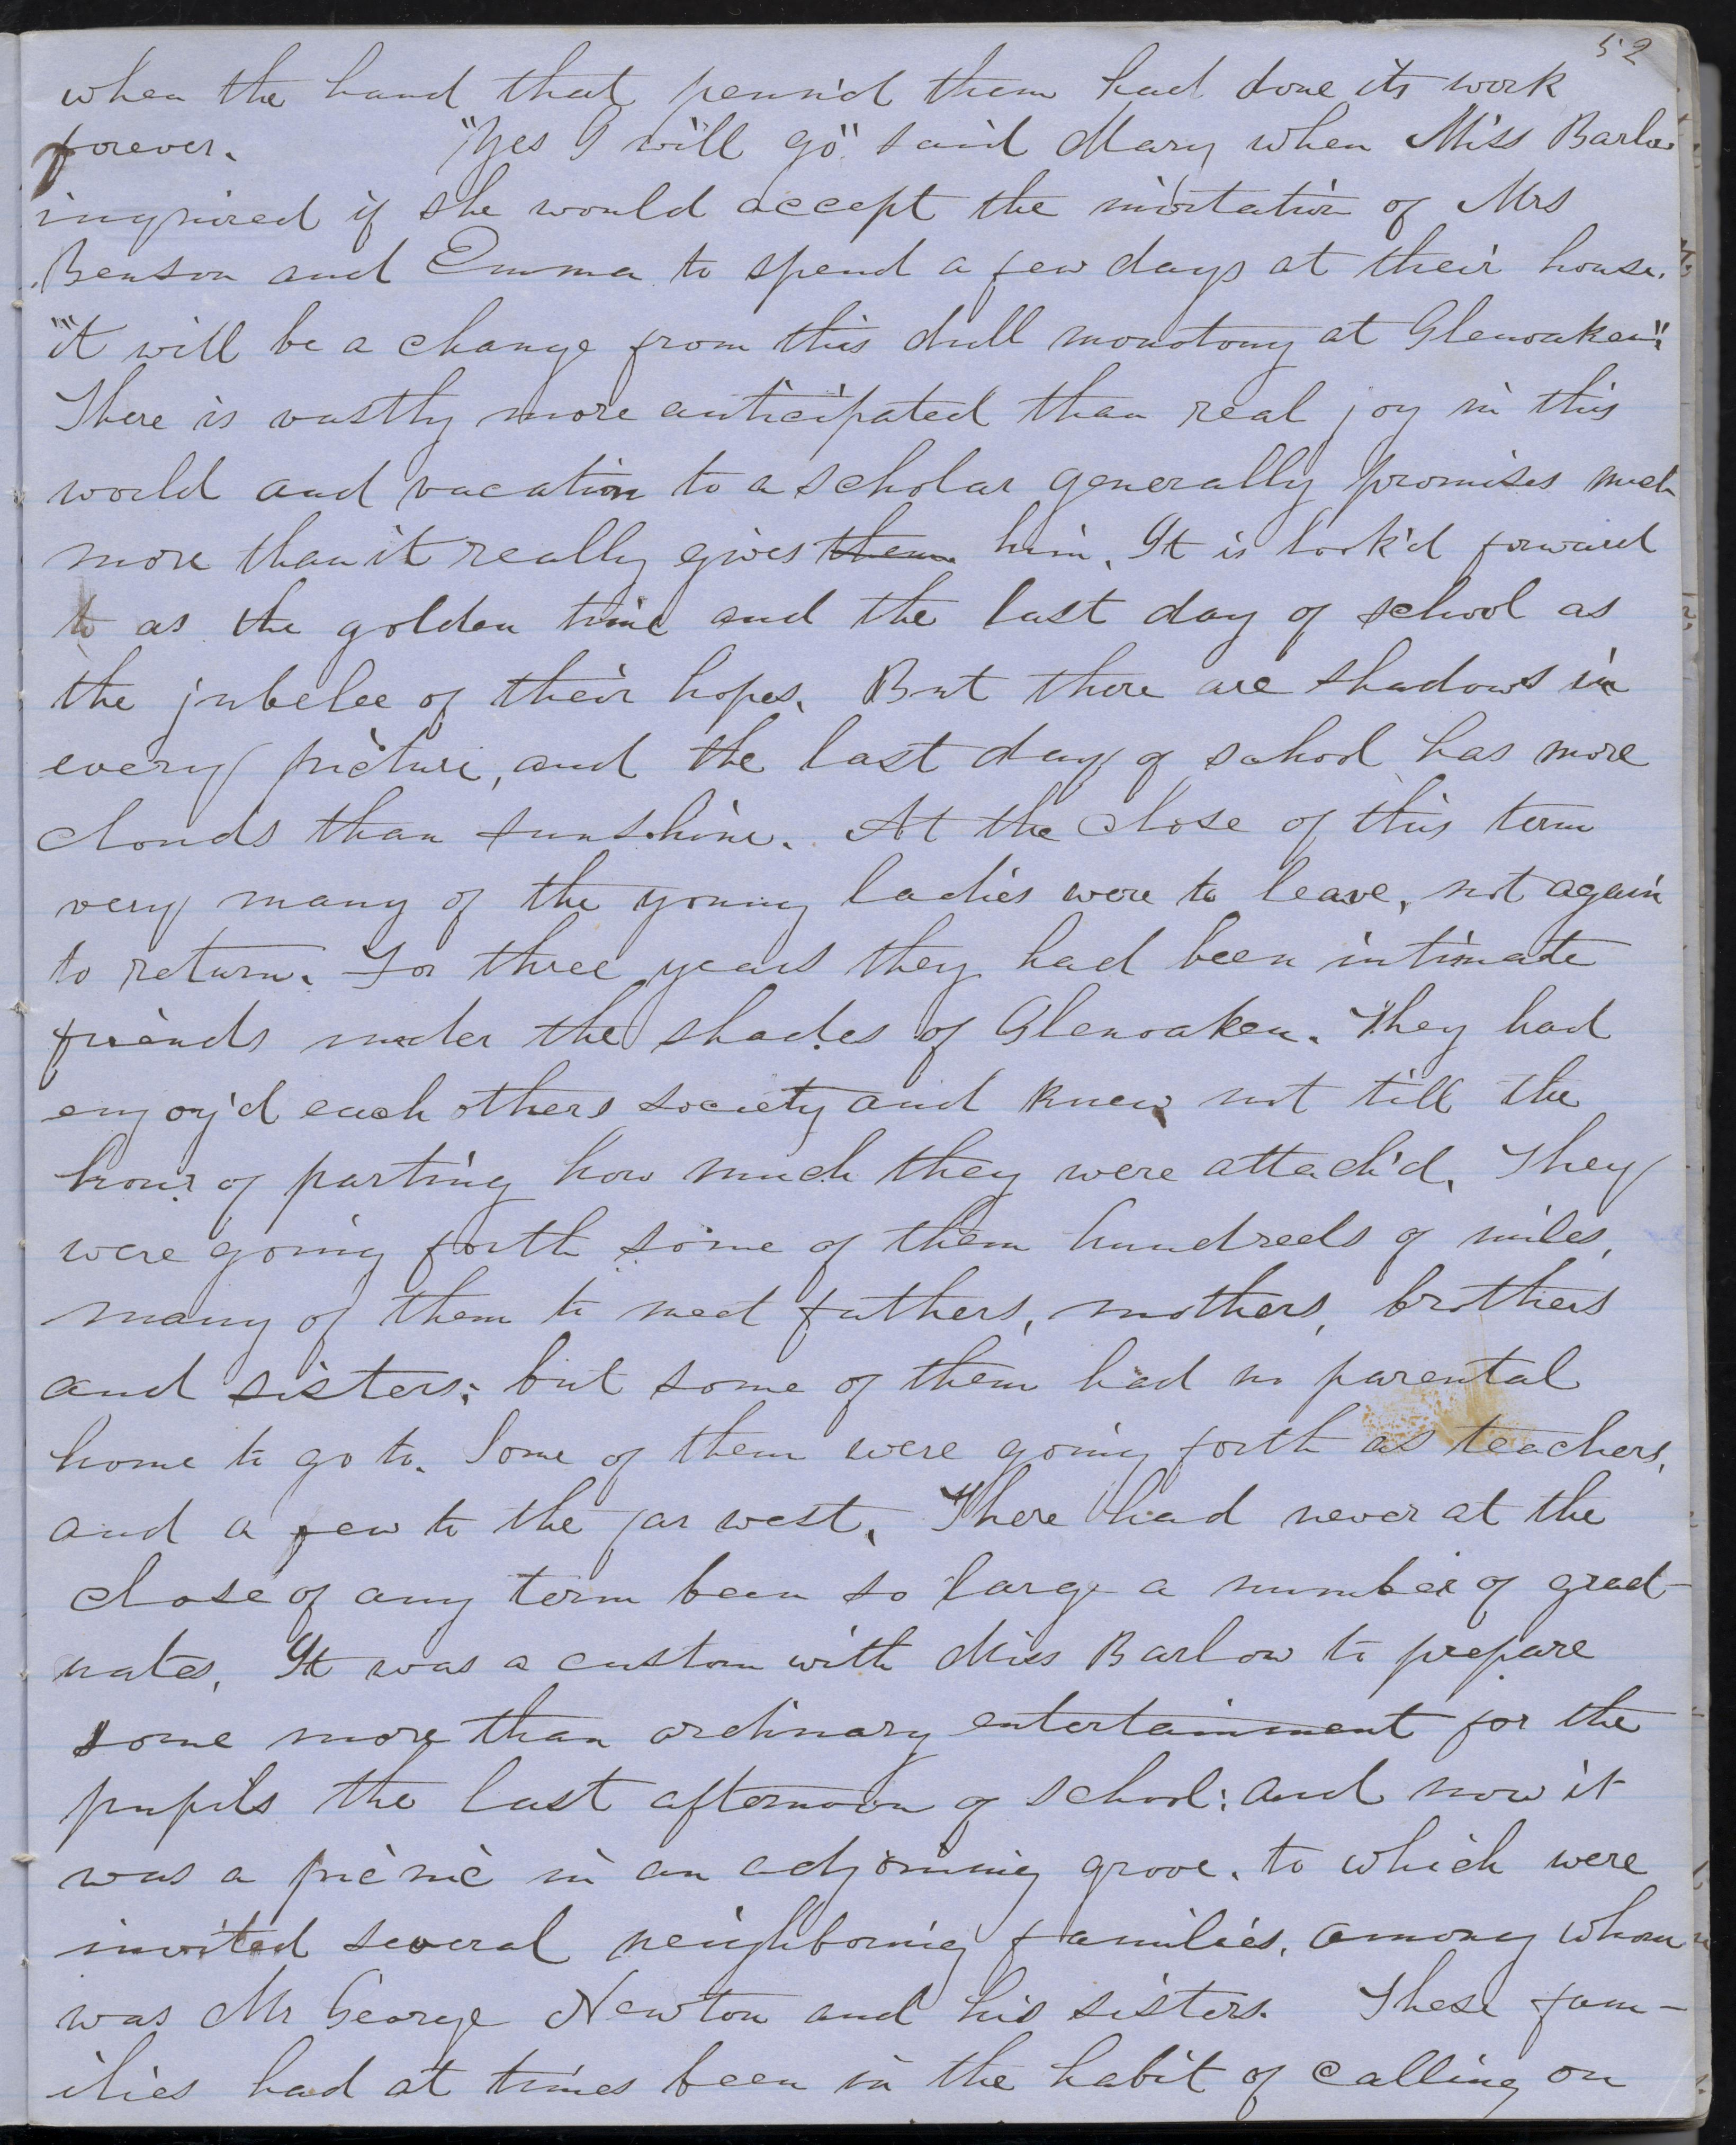 52
when the hand that penn'd them had done its work
forever. "Yes I will go" said Mary when Miss Barlow
inquired if she would accept the invitation of Mrs
Benson and Emma to spend a few days at their house.
"it will be a change from this dull monotony at Glenoaken".
There is vastly more anticipated than real joy in this
world and vacation to a scholar generally promises much
more than it really gives them him. It is look'd forward
to as the golden time and the last day of school as
the jubelee of their hopes. But there are shadows in
every picture, and the last day of school has more
clouds than sunshine. At the close of this term
very many of the young ladies were to leave, not again
to return. For three years they had been intimate
friends under the shades of Glenoaken. They had
enjoy'd each others society and knew not till the
hour of parting how much they were attach'd. They
were going forth some of them hundreds of miles,
many of them to meet fathers, mothers, brothers
and sisters; but some of them had no parental
home to go to. Some of them were going forth as teachers,
and a few to the far west. There had never at the
close of any term been so large a number of grad-
uates. It was a custom with Miss Barlow to prepare
some more than ordinary entertainment for the
pupils the last afternoon of school: and now it
was a picnic in an adjoining grove. to which were
invited several neighboring families, among whom
was Mr George Newton and his sisters. These fam-
ilies had at times been in the habit of calling on